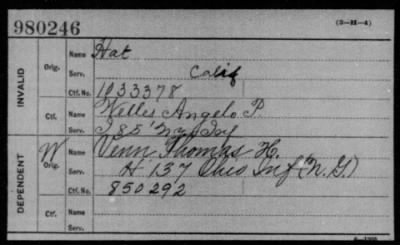 980246 (3-H-4)
INVALID
Orig. Name Hat
Serv. Calif
Ctf. No. 1033378
Ctf. Name Welles Angelo P.
Serv. I 85 Inf
DEPENDENT
W Orig. Name Venn Thomas H.
Serv. H 137 Ohio Inf (N.G.)
Ctf. No. 850292
Ctf. Name
Serv.